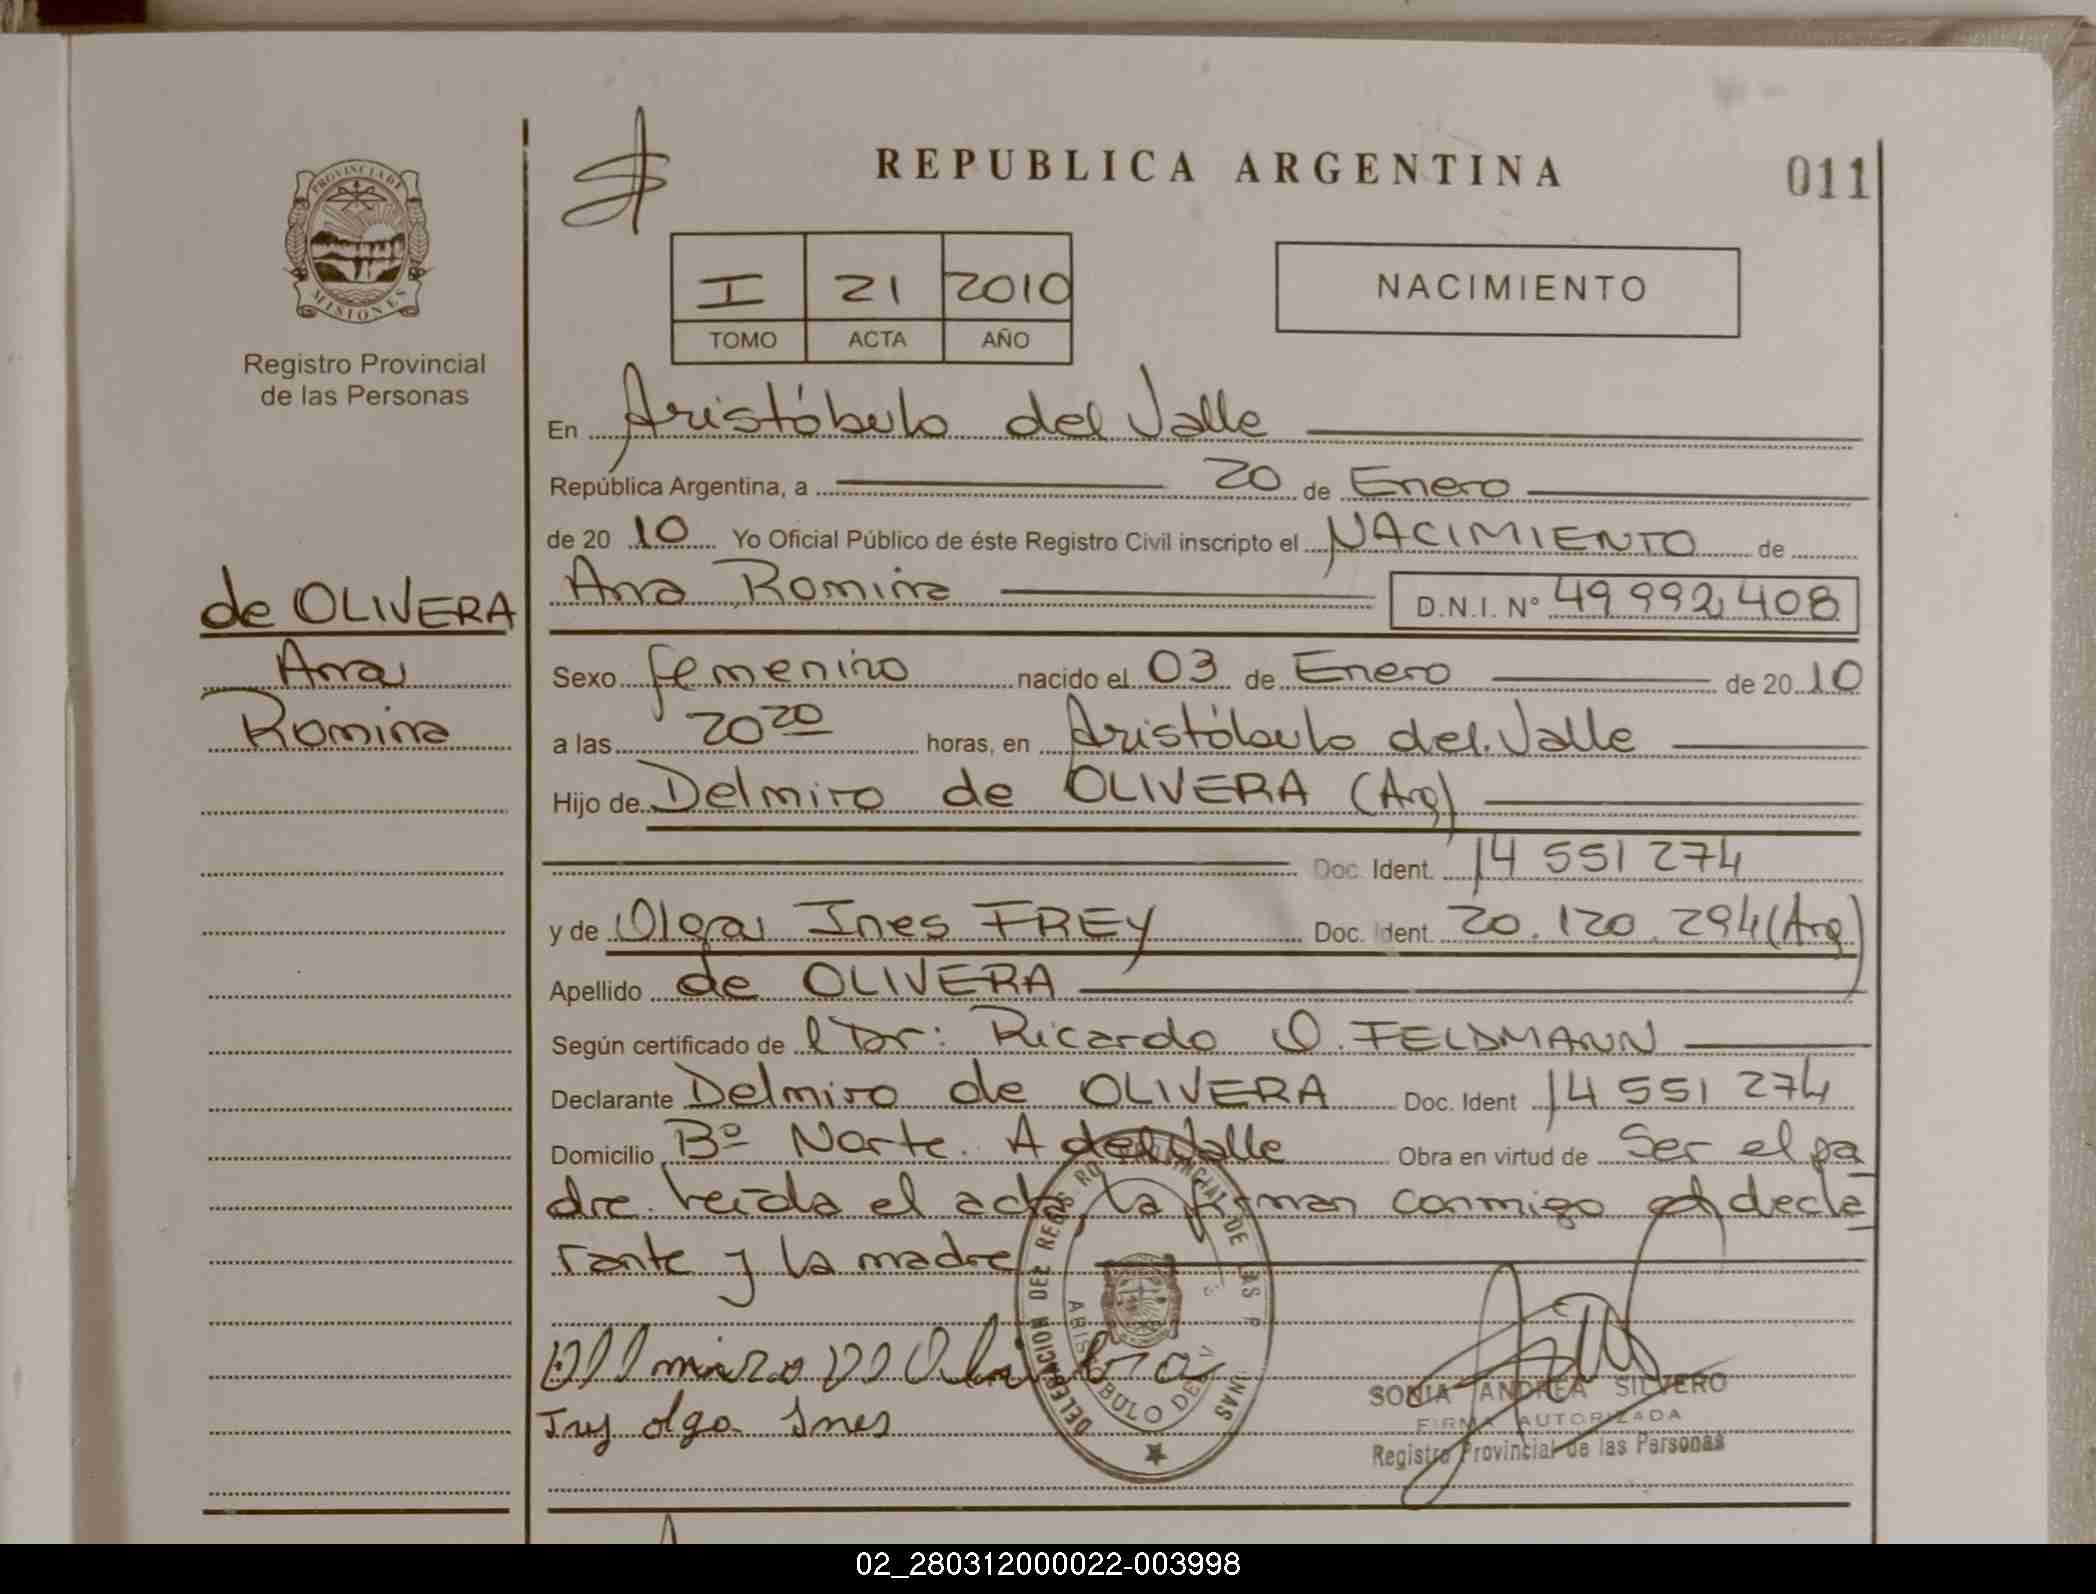 REPUBLICA ARGENTINA
011
PROVINCIA DE
MISIONES
Registro Provincial
de las Personas
I 21 2010
TOMO ACTA AÑO
NACIMIENTO
En Aristóbulo del Valle
República Argentina, a 20 de Enero
de 20 10 Yo Oficial Público de éste Registro Civil inscripto el NACIMIENTO de
de OLIVERA
Ana
Romina
Ana Romina D.N.I. Nº 49 992 408
Sexo femenino nacido el 03 de Enero de 20 10
a las 20 20 horas, en Aristóbulo del Valle
Hijo de Delmiro de OLIVERA (Arg)
Doc. Ident. 14 551 274
y de Olga Ines FREY Doc. Ident 20.120.294 (Arg)
Apellido de OLIVERA
Según certificado de l Dr: Ricardo O. FELDMANN
Declarante Delmiro de OLIVERA Doc. Ident 14 551 274
Domicilio Bº Norte. A del Valle Obra en virtud de Ser el pa
dre. Leída el acta, la firman conmigo el decla
rante y la madre
Olga Ines
SONIA ANDREA SILVERO
FIRMA AUTORIZADA
Registro Provincial de las Personas
02_280312000022-003998